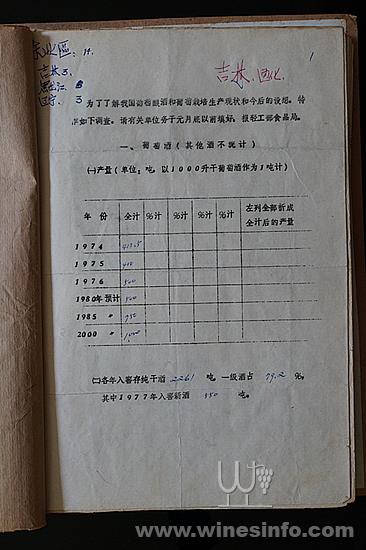 东北区: 14.
吉林 3.
黑龙江 8
辽宁. 3
吉林.
1
为了了解我国葡萄酿酒和葡萄栽培生产现状和今后的设想。特
作如下调查。请有关单位务于元月底以前填好，报轻工部食品局。
一、葡萄酒（其他酒不统计）
㈠产量（单位：吨。以1000升干葡萄酒作为1吨计）
年份 全汁 %汁 %汁 %汁 %汁 左列全部折成全汁后的产量
1974
1975 400
1976 500
1980年预计 500
1985 〃 750
2000 〃 1000
㈡各年入窖存纯干酒 2261 吨。一级酒占 79.2 %。
其中1977年入窖新酒 550 吨。
www.winesinfo.com